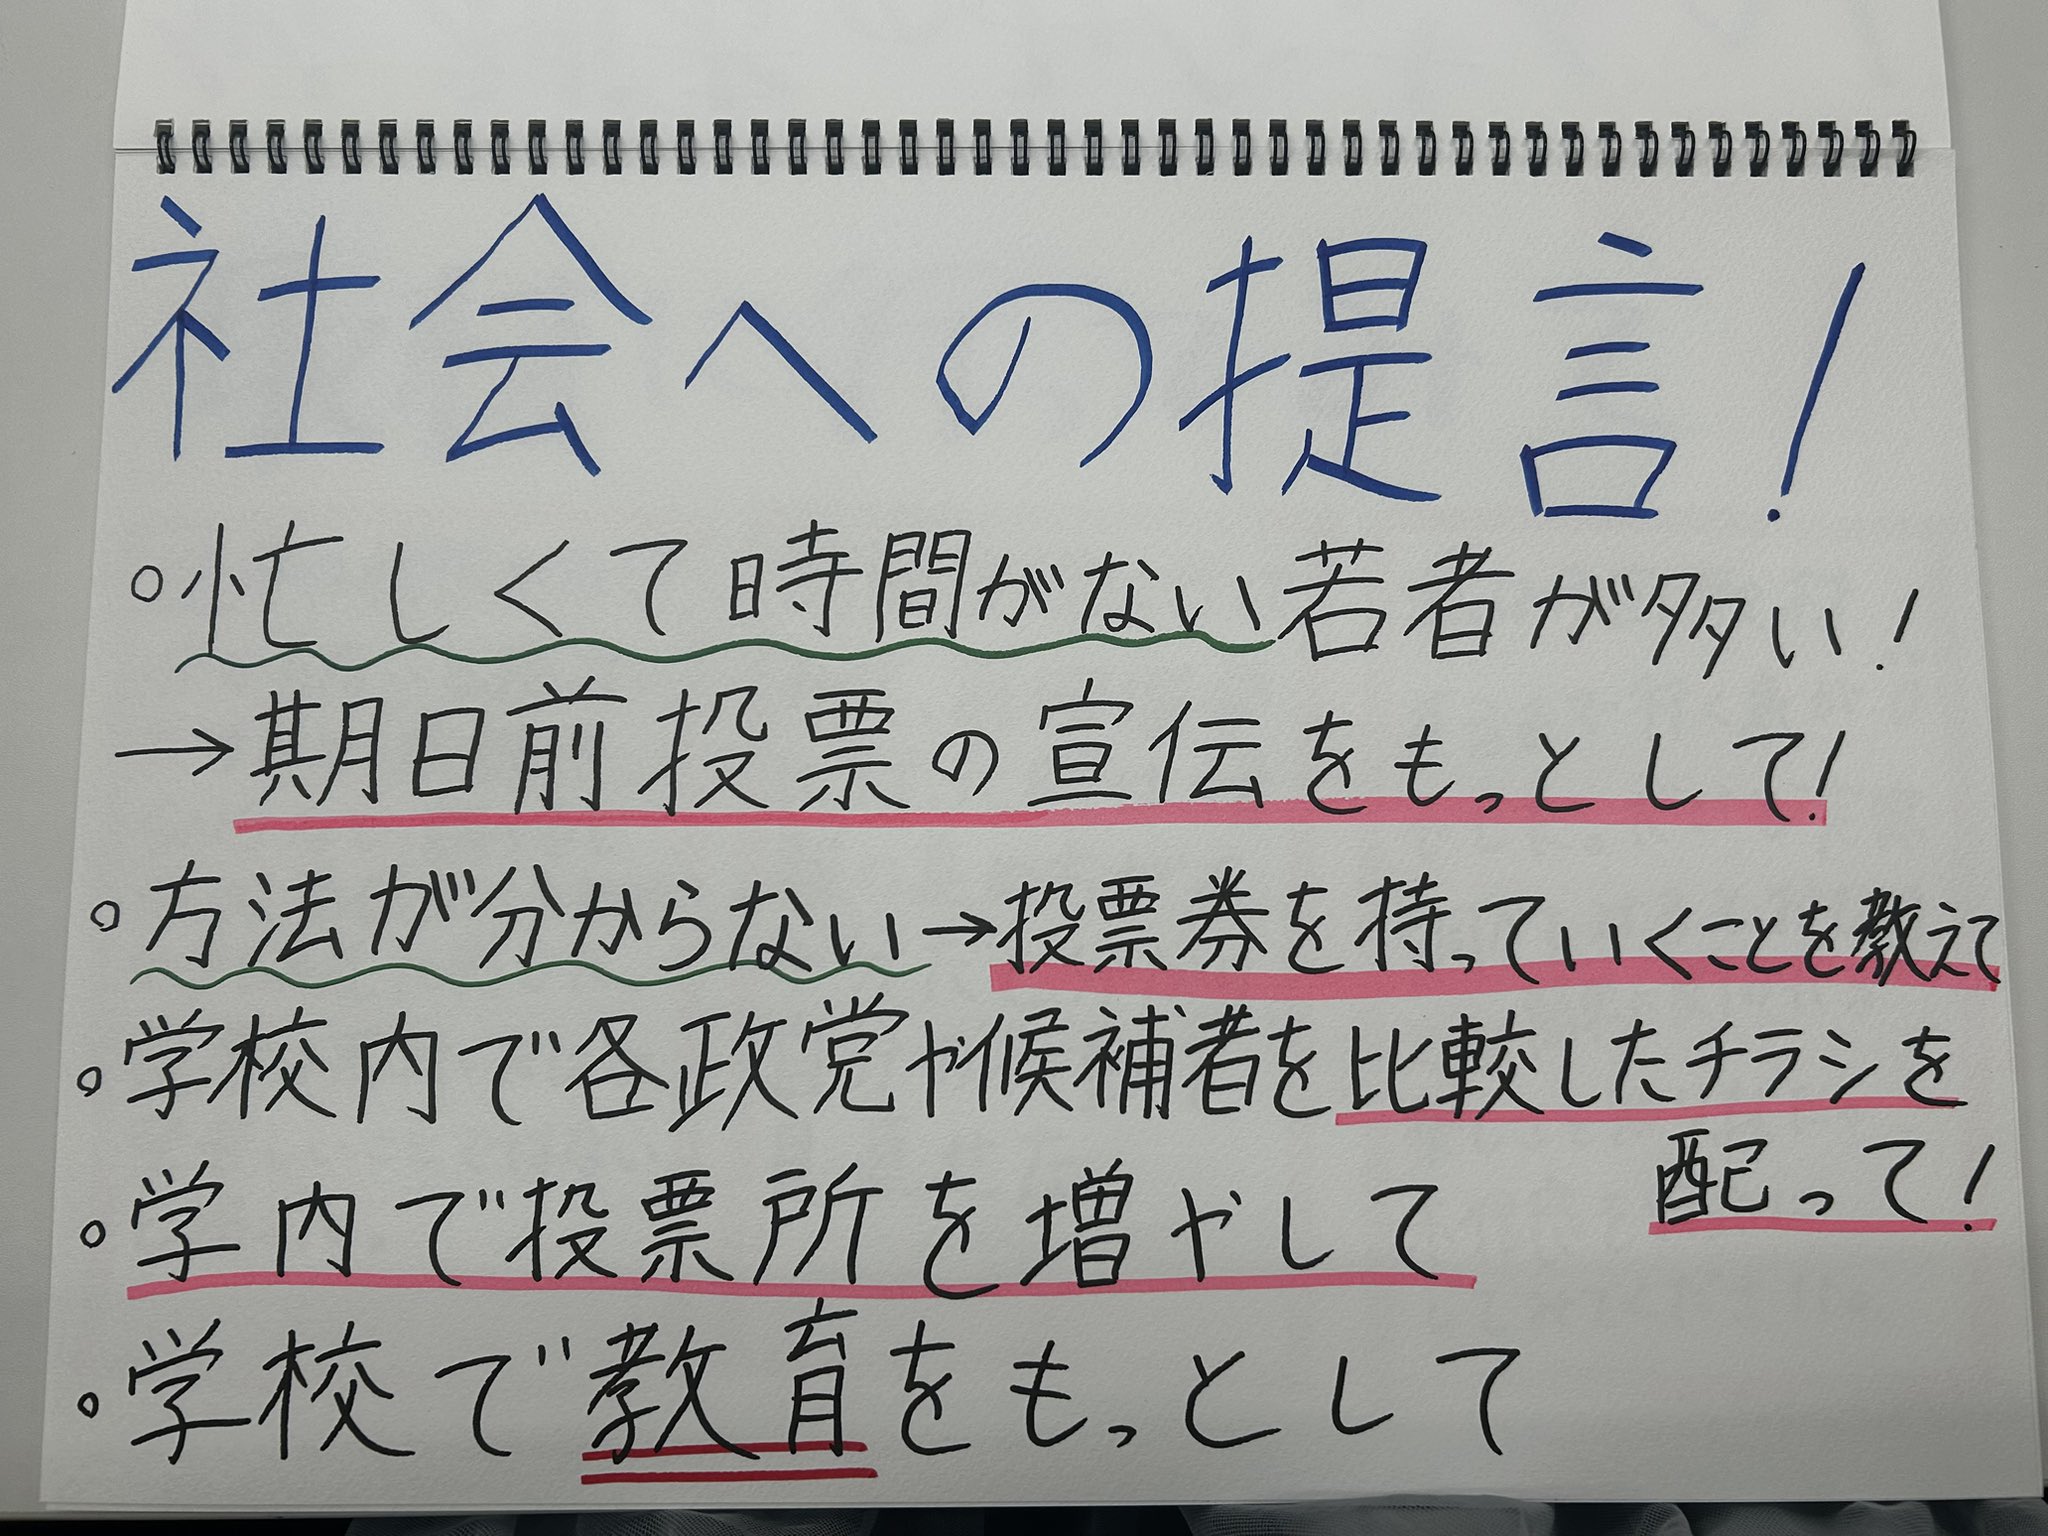 社会への提言!
○忙しくて時間がない若者が多い!
→期日前投票の宣伝をもっとして!
○方法が分からない→投票券を持っていくことを教えて
○学校内で各政党や候補者を比較したチラシを
配って!
○学内で投票所を増やして
○学校で教育をもっとして